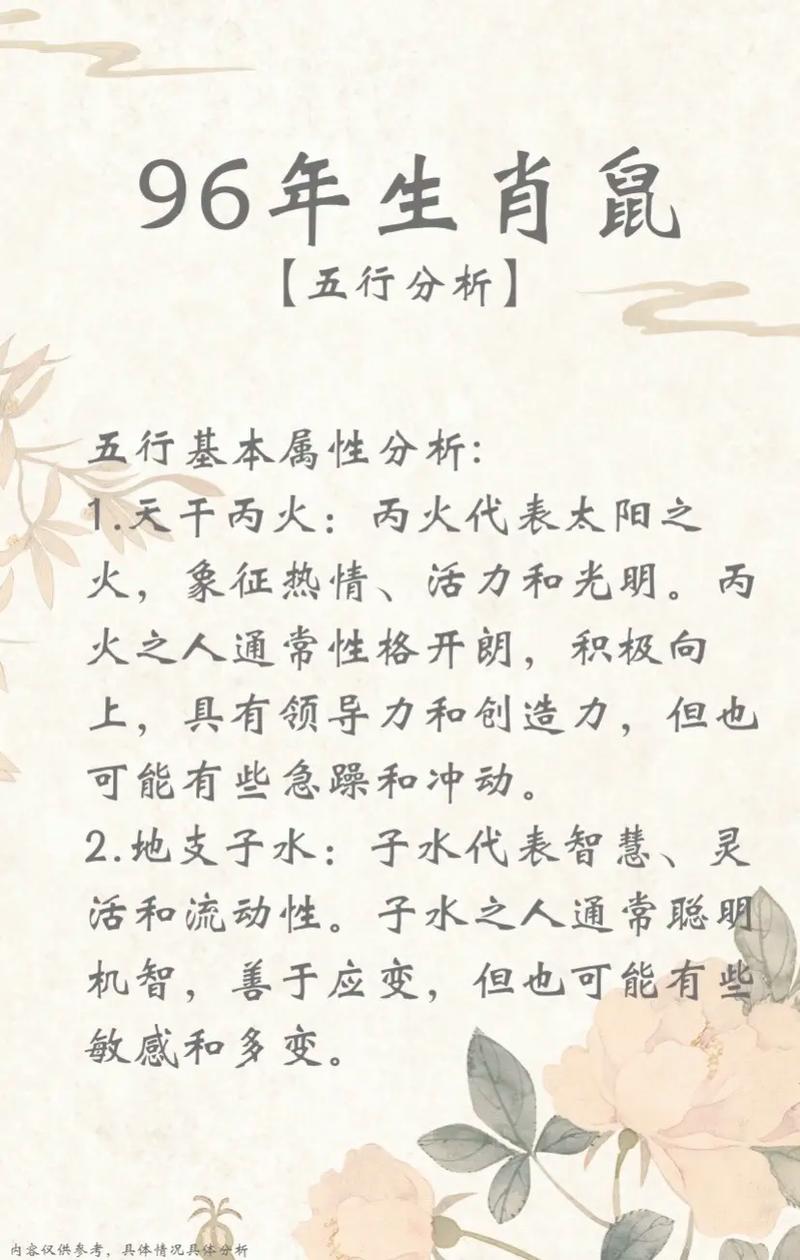 96年生肖鼠
【五行分析】
五行基本属性分析:
1.天干丙火：丙火代表太阳之
火，象征热情、活力和光明。丙
火之人通常性格开朗，积极向
上，具有领导力和创造力，但也
可能有些急躁和冲动。
2.地支子水：子水代表智慧、灵
活和流动性。子水之人通常聪明
机智，善于应变，但也可能有些
敏感和多变。
内容仅供参考，具体情况具体分析